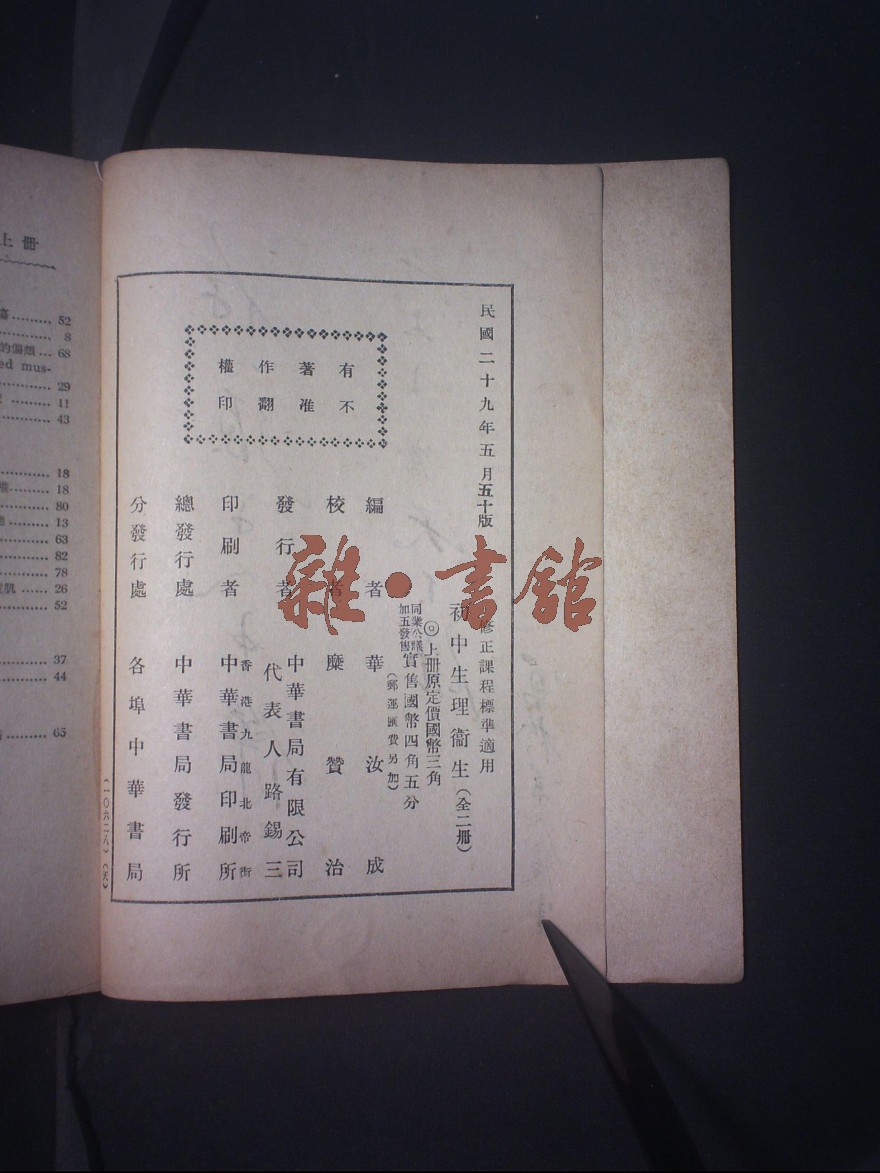 民國二十九年五月五十版
修正課程標準適用
初中生理衞生(全二册)
◎上册原定價國幣三角
同業公議
加五發售
實售國幣四角五分
(郵運匯費另加)
有著作權
不准翻印
編者 華汝成
校者 糜贊治
發行者 中華書局有限公司
代表人路錫三
印刷者 香港九龍北帝街
中華書局印刷所
總發行處 中華書局發行所
分發行處 各埠中華書局
(一〇六二八)
雜·書館
上册
52
8
的偏頗 68
ed mus-
29
11
43
18
18
80
13
63
82
78
肌 26
52
37
44
65